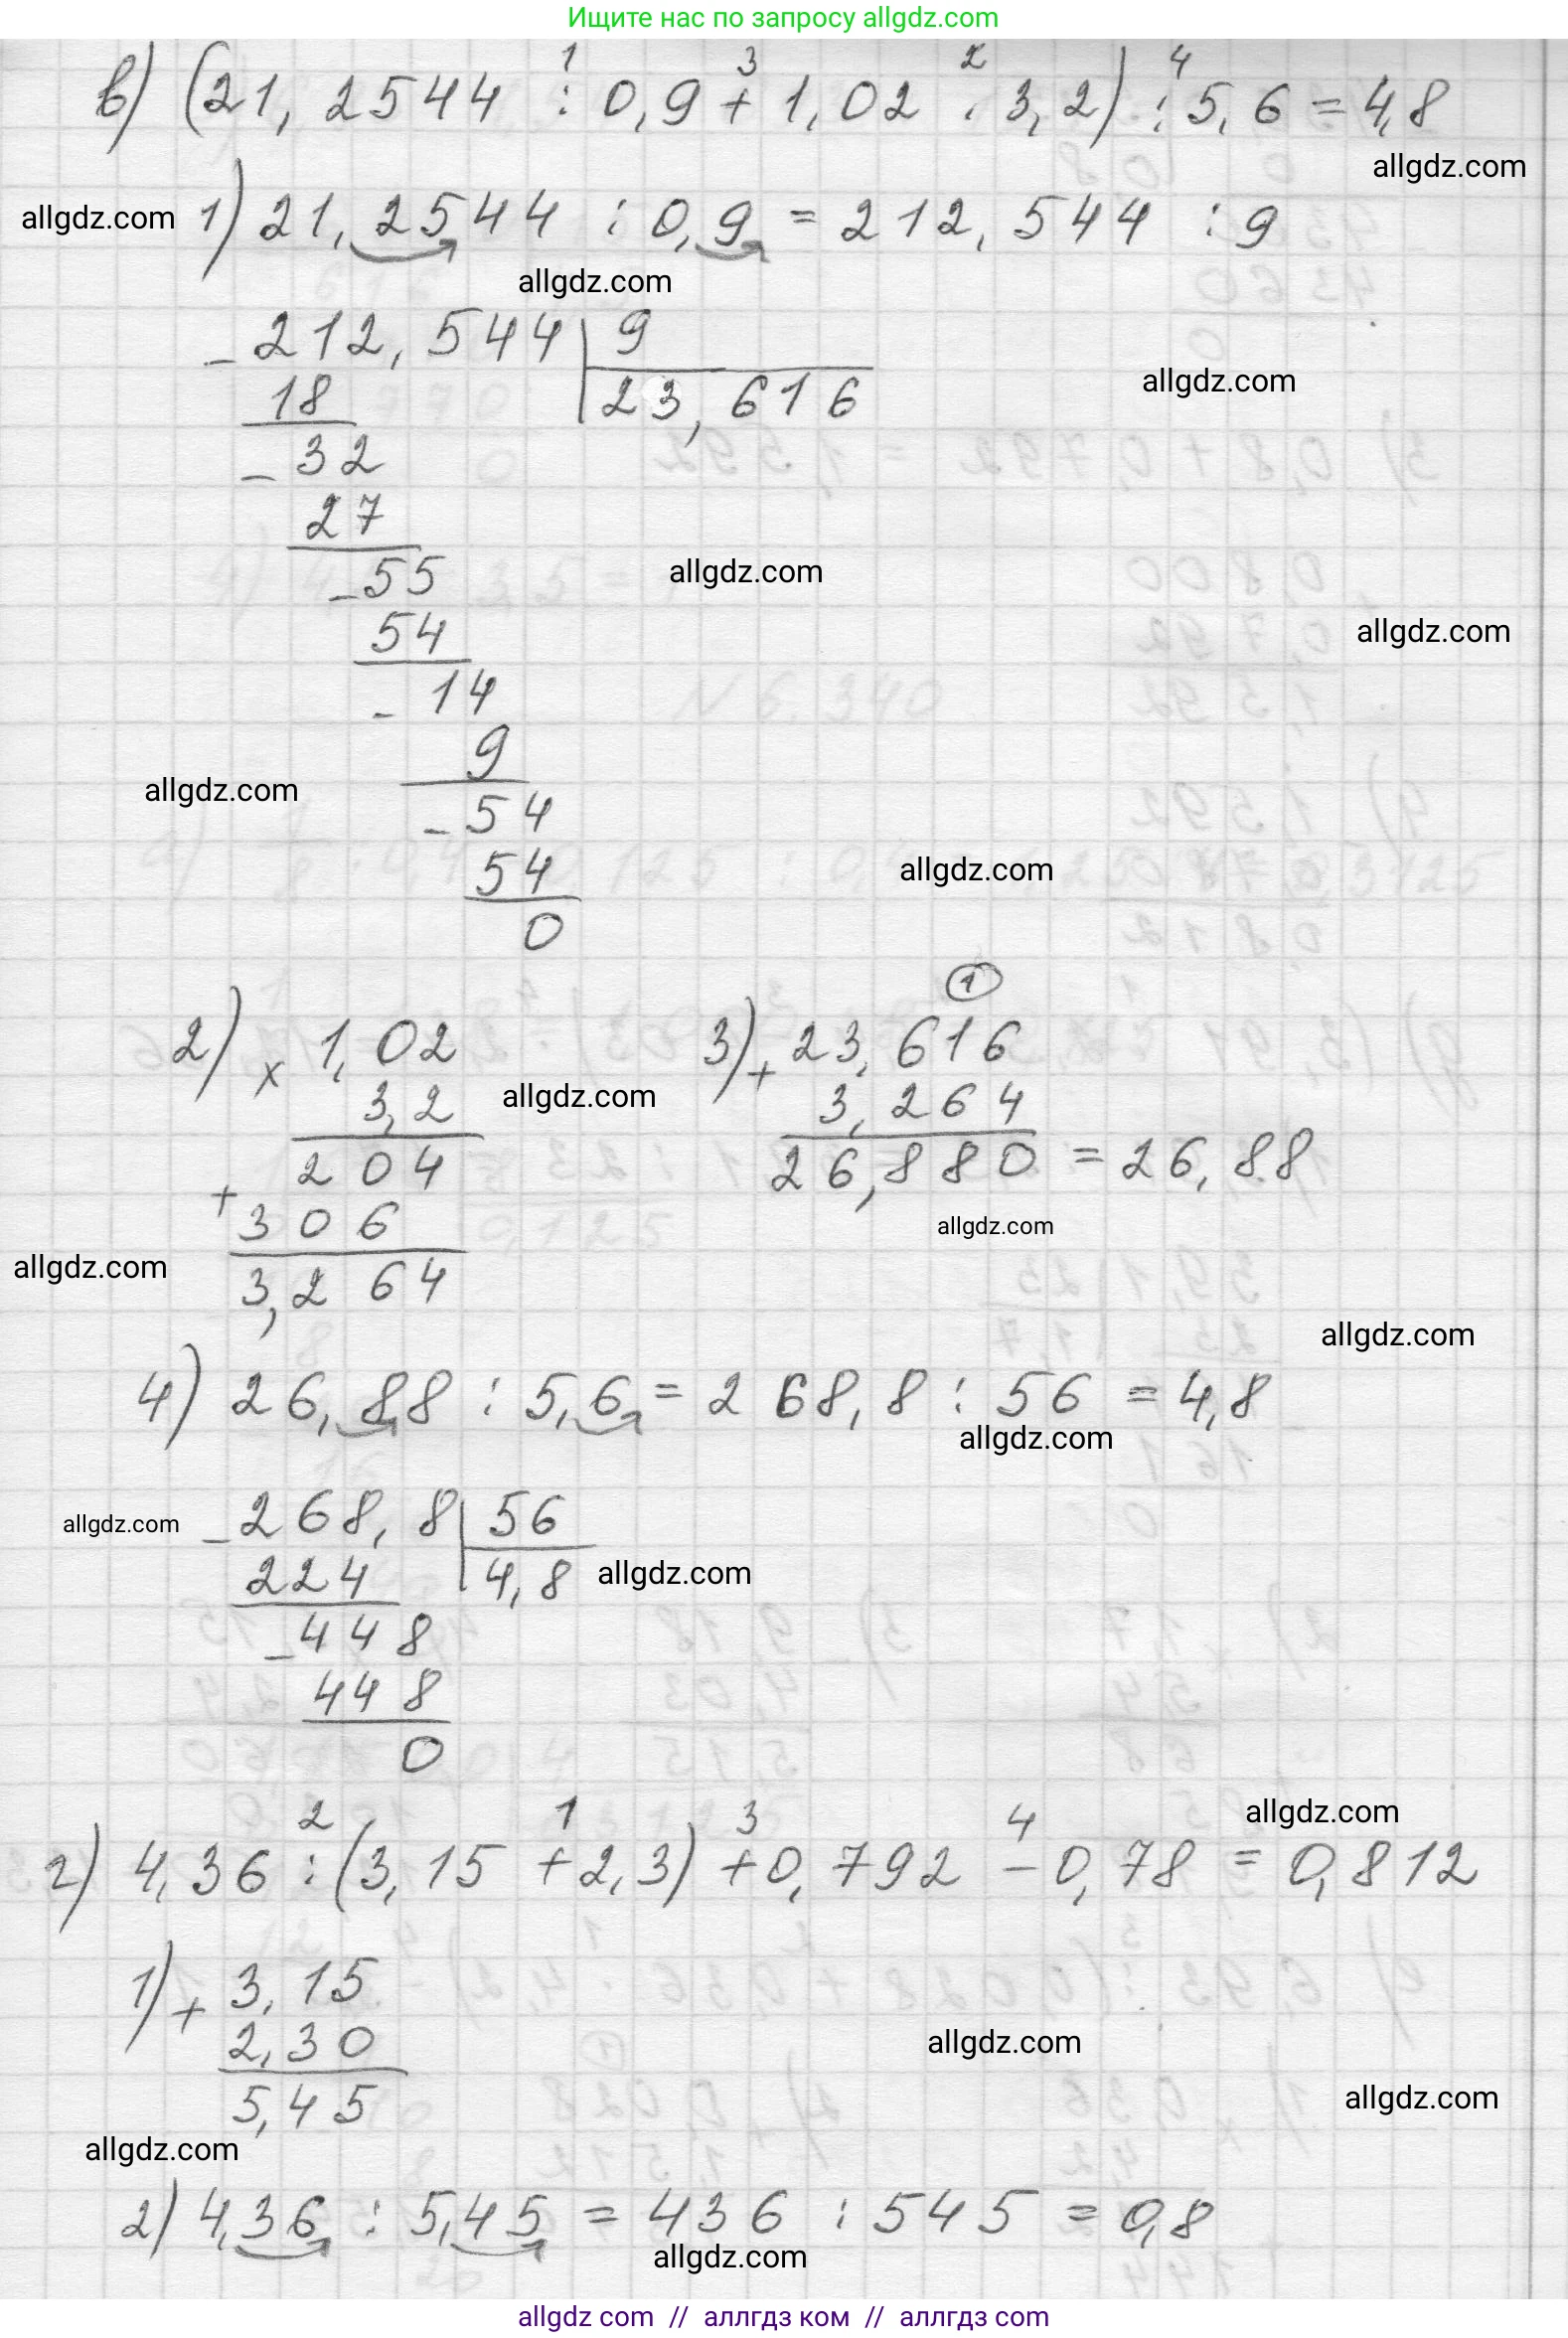 Ищите нас по запросу allgdz.com
1 3 2 4
в) (21,2544 : 0,9 + 1,02 · 3,2) : 5,6 = 4,8
allgdz.com
allgdz.com 1) 21,2544 : 0,9 = 212,544 : 9
allgdz.com
- 212,544 | 9
18 23,616
allgdz.com
- 32
27
- 55
allgdz.com
54
allgdz.com
- 14
9
allgdz.com
- 54
54
allgdz.com
0
1
2) × 1,02 3) + 23,616
3,2 allgdz.com 3,264
204 26,880 = 26,88
+ 306
allgdz.com
allgdz.com
3,264
allgdz.com
4) 26,88 : 5,6 = 268,8 : 56 = 4,8
allgdz.com
allgdz.com - 268,8 | 56
224 4,8 allgdz.com
- 448
448
0
allgdz.com
2 1 3 4
г) 4,36 : (3,15 + 2,3) + 0,792 - 0,78 = 0,812
1) + 3,15
2,30
allgdz.com
5,45
allgdz.com
allgdz.com
2) 4,36 : 5,45 = 436 : 545 = 0,8
allgdz.com
allgdz com // аллгдз ком // аллгдз com